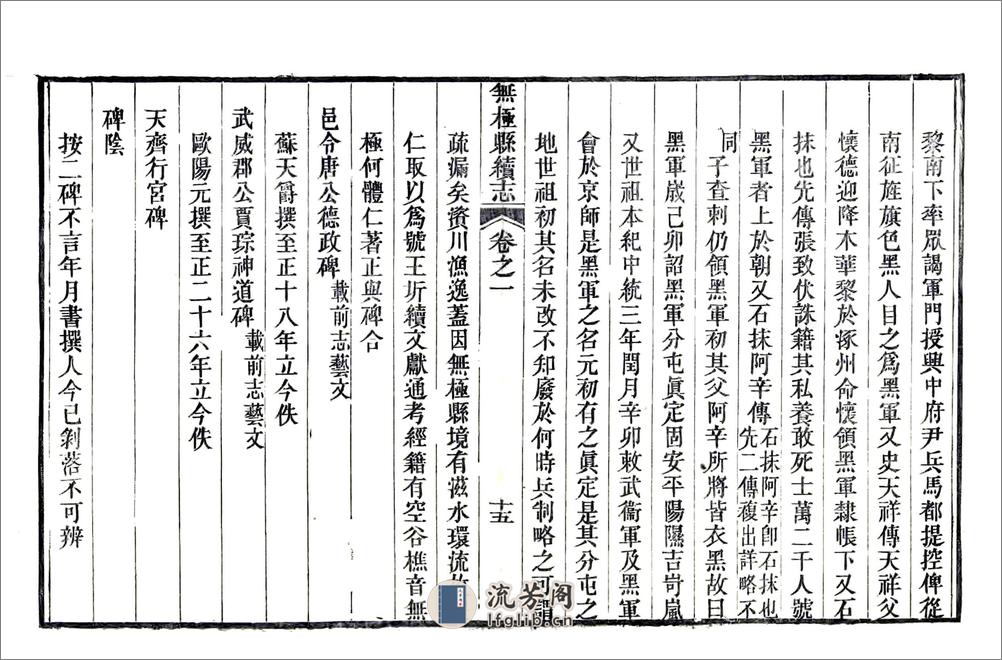 黎南下率眾謁軍門授興中府尹兵馬都提控俾從
南征旌旗色黑人目之爲黑軍又史天祥傳天祥父
懷德迎降木華黎於涿州命懷領黑軍隸帳下又石
抹也先傳張致伏誅籍其私養敢死士萬二千人號
黑軍者上於朝又石抹阿辛傳石抹阿辛卽石抹也
先二傳複出詳略不
同子查刺仍領黑軍初其父阿辛所將皆衣黑故曰
黑軍歲己卯詔黑軍分屯眞定固安平陽隰吉岢嵐
又世祖本紀中統三年閏月辛卯敕武衞軍及黑軍
會於京師是黑軍之名元初有之眞定是其分屯之
地世祖初其名未改不知廢於何時兵制略之可謂
無極縣續志
卷之一
十五
疏漏矣資川漁逸蓋因無極縣境有滋水環流故
仁取以爲號王圻續文獻通考經籍有空谷樵音無
極何體仁著正與碑合
邑令唐公德政碑載前志藝文
蘇天爵撰至正十八年立今佚
武威郡公賈琮神道碑載前志藝文
歐陽元撰至正二十六年立今佚
天齊行宮碑
碑陰
按二碑不言年月書撰人今已剝落不可辨
流芳阁
lfglib.cn